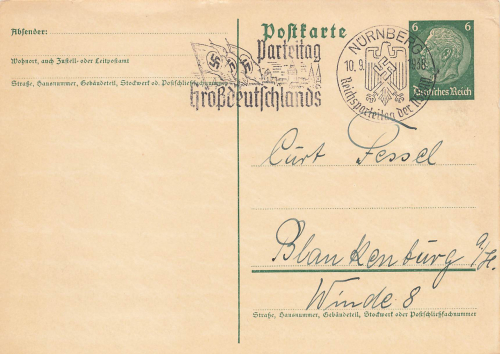 Absender:
Wohnort, auch Zustell- oder Leitpostamt
Straße, Hausnummer, Gebäudeteil, Stockwerk od. Postschließfachnummer
Postkarte
Parteitag
Großdeutschlands
NÜRNBERG
10.9. 1938
Reichsparteitag der
6 6
Deutsches Reich
Curt Fessel
Blankenburg a/H.
Winde 8
Straße, Hausnummer, Gebäudeteil, Stockwerk oder Postschließfachnummer